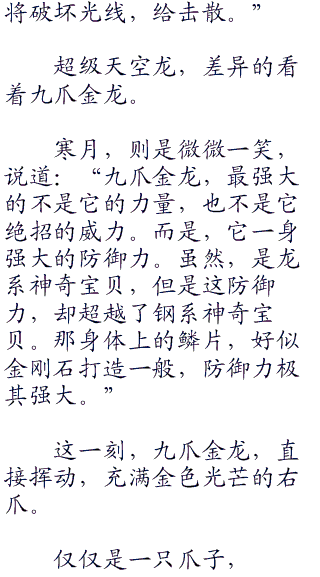 将破坏光线，给击散。”
超级天空龙，差异的看
着九爪金龙。
寒月，则是微微一笑，
说道：“九爪金龙，最强大
的不是它的力量，也不是它
绝招的威力。而是，它一身
强大的防御力。虽然，是龙
系神奇宝贝，但是这防御
力，却超越了钢系神奇宝
贝。那身体上的鳞片，好似
金刚石打造一般，防御力极
其强大。”
这一刻，九爪金龙，直
接挥动，充满金色光芒的右
爪。
仅仅是一只爪子，